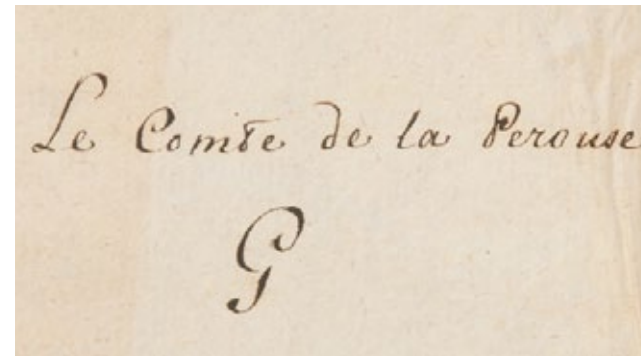 Le Comte de la Perouse
G